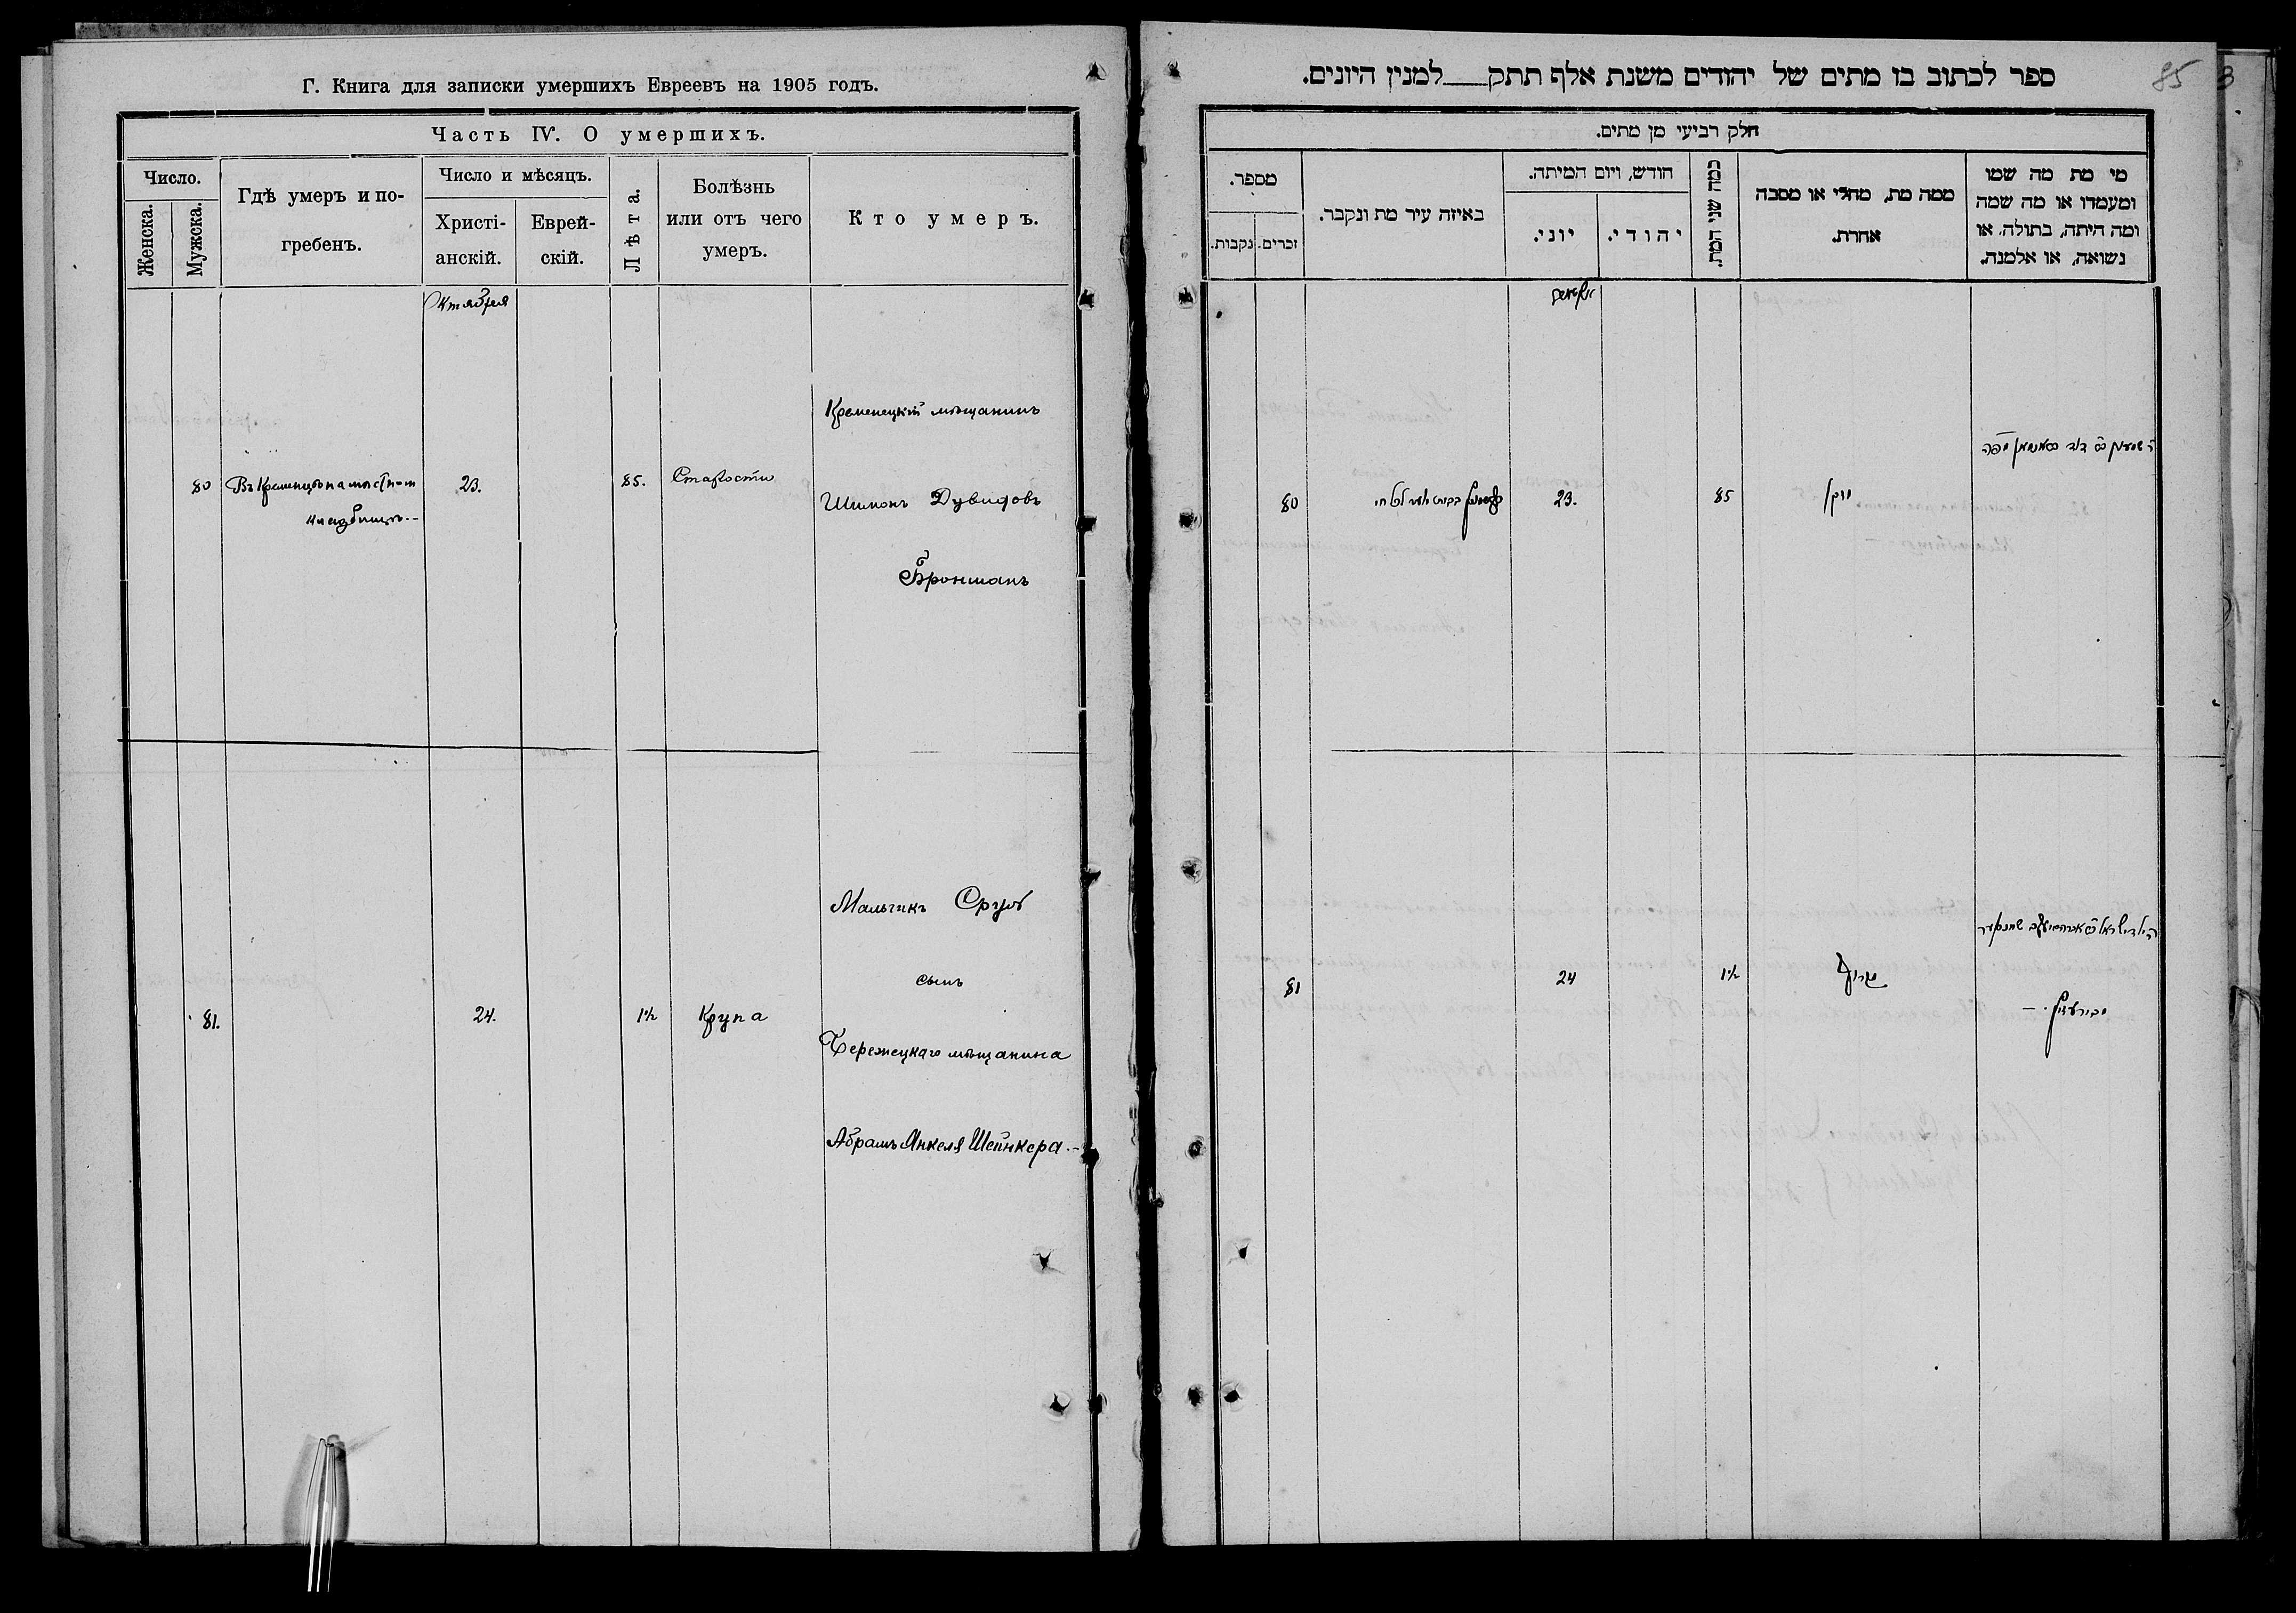 Г. Книга для записки умершихъ Евреевъ на 1905 годъ.
Часть IV. О умершихъ.
Число.
Женска.
Мужска.
Гдѣ умеръ и по-
гребенъ.
Число и мѣсяцъ.
Христі-
анскій.
Еврей-
скій.
Лѣта.
Болѣзнь
или отъ чего
умеръ.
Кто умеръ.
Октября
80
Въ Кременцѣ на мѣстном
кладбищѣ.
23.
85.
Старости
Кременецкій мѣщанинъ
Шимонъ Дувидовъ
81.
24.
1½
Крупа
Мальчикъ Сруль
сынъ
Бережецкаго мѣщанина
Абрамъ Янкеля Шейнкера.
ספר לכתוב בו מתים של יהודים משנת אלף תתק__למנין היונים.
85
חלק רביעי מן מתים.
מספר.
נקבות.
זכרים.
באיזה עיר מת ונקבר.
חודש, ויום המיתה.
יוני.
יהודי.
כמה שני המת.
ממה מת, מחלי או מסבה
אחרת.
מי מת מה שמו
ומעמדו או מה שמה
ומה היתה, בתולה, או
נשואה, או אלמנה.
80
23.
85
זוקן
81
24
1½